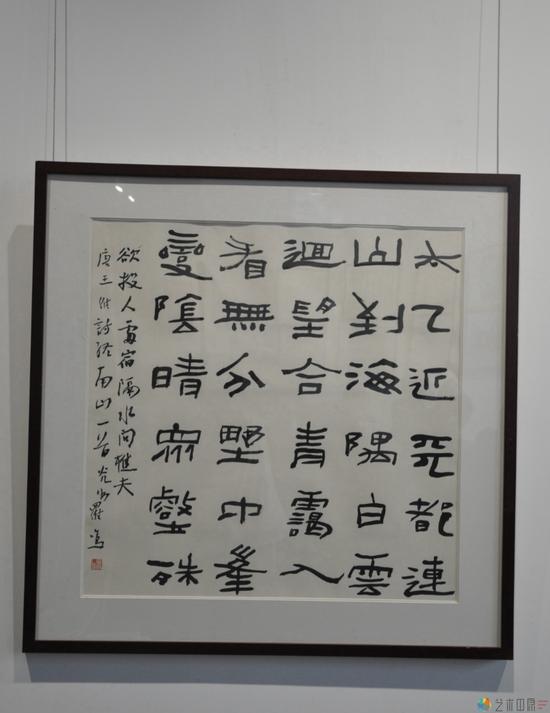 太乙近天都連
山到海隅白雲
迴望合青靄入
看無分野中峯
變陰晴眾壑殊
欲投人處宿隔水問樵夫
唐王維詩終南山一首
艺术中原